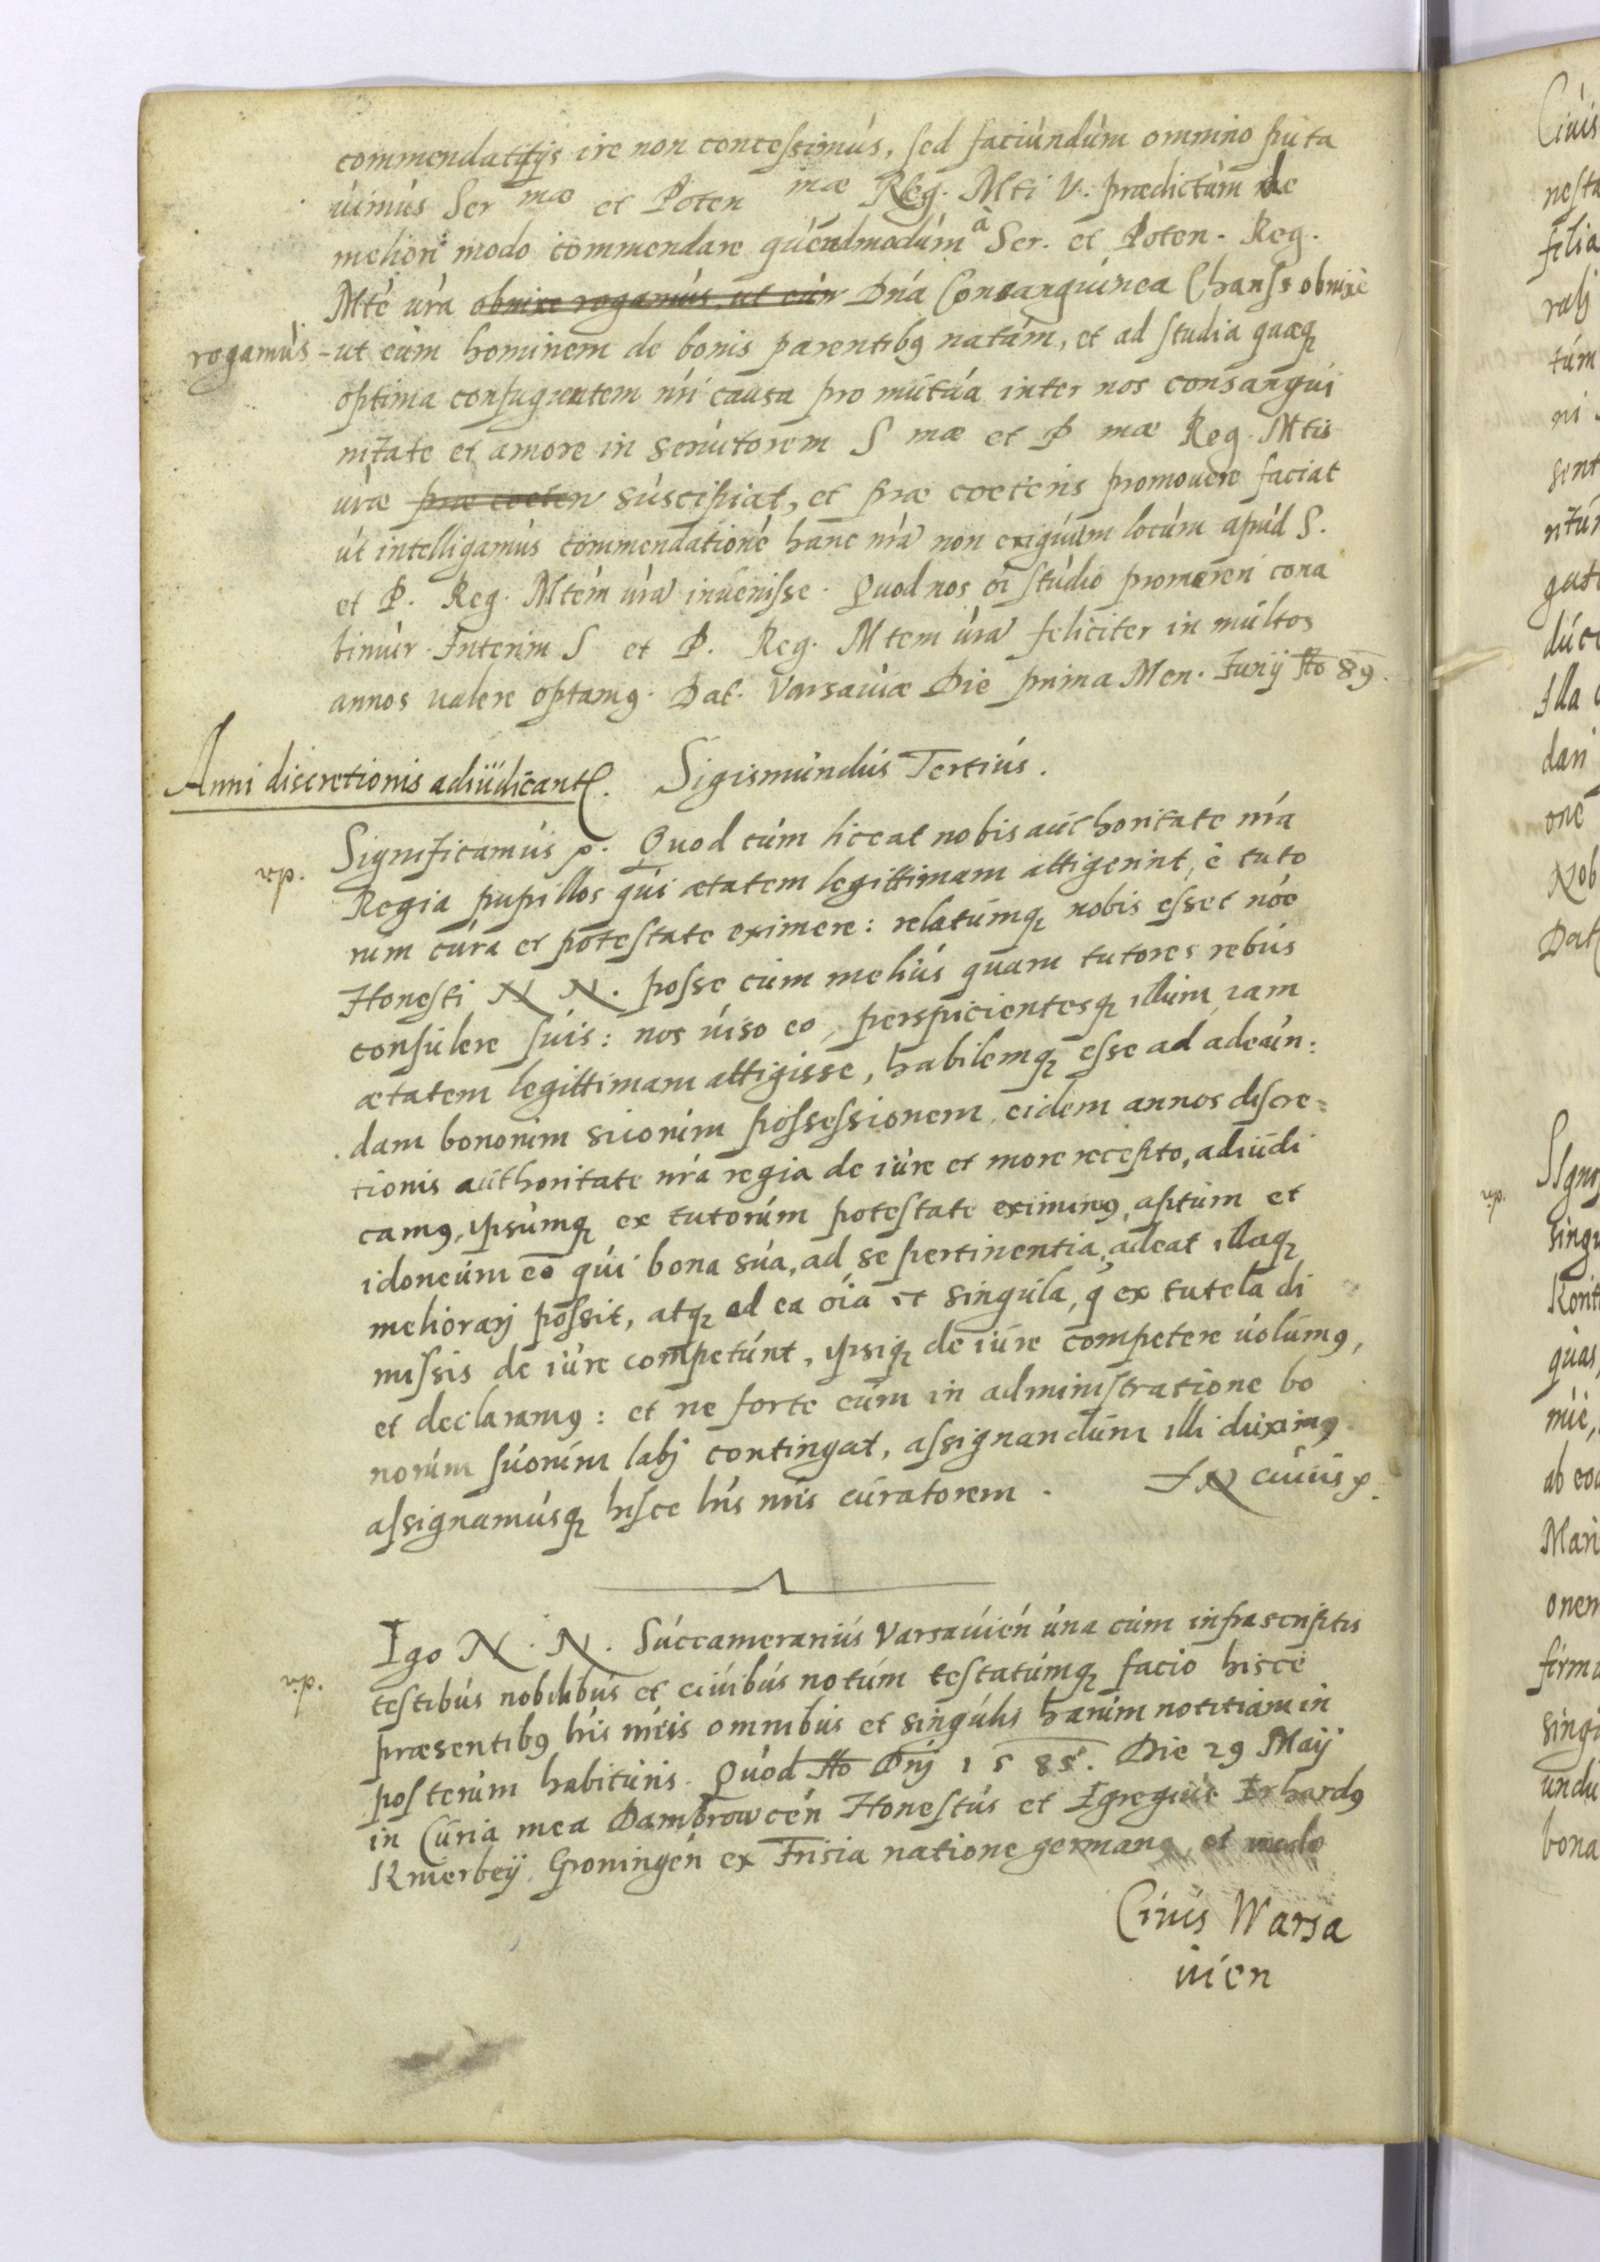 commendatitijs ire non concessimus, sed faciundum omnino puta
uimus Ser mæ et Poten mæ Reg. Mti V. prædictum de
meliori modo commendare quendmodum à Ser. et Poten. Reg.
Mte ura obnixe rogamus, ut eum Dna Consanguinea Chanss obnixè
rogamus - ut eum hominem de bonis parentibq natum, et ad studia quæq
optima confugientem nri causa pro mutua inter nos consangui
nitate et amore in seruitorem S mæ et P mæ Reg. Mtis
uræ præ coeter suscipiat, et præ coeteris promouere faciat
ut intelligamus commendatione hanc nra non exiguum locum apud S.
et P. Reg. Mtem ura inuenisse. Quod nos oi studio promereri cona
bimur. Interim S et P. Reg. Mtem ura feliciter in multos
annos ualere optamq. Dat. Varsauiæ Die prima Men. Junij Ao 89.
Anni discretionis adiudicant. Sigismundus Tertius.
Significamus p. Quod cum liceat nobis authoritate nra
Regia pupillos qui ætatem legittimam attigerint, è tuto
rum cura et potestate eximere: relatumq nobis esset noe
Honesti N N. posse eum melius quam tutores rebus
consulere suis: nos uiso eo, perspicientesq illum iam
ætatem legittimam attigisse, habilemq esse ad adeun:
dam bonorum suorum possessionem, eidem annos discre=
tionis authoritate nra regia de iure et more recepto, adiudi
camq, ipsumq ex tutorum potestate eximimq, aptum et
idoneum eo qui bona sua, ad se pertinentia, adeat illaq
meliorarj possit, atq ad ea oia et singula, q ex tutela di
missis de iure competunt, ipsiq de iure competere uolumq,
et declaramq: et ne forte eum in administratione bo
norum suorum labj contingat, assignandum illi duximq
assignamusq hisce lris nris curatorem. F N ciuiis p.
Ego N. N. Succamerarius Varsauien una cum infrascriptis
testibus nobilibus et ciuibus notum testatumq facio hisce
præsentibq lris meis omnibus et singulis harum notitiam in
posterum habituris. Quod Ao Dnj 1585. Die 29 Maij
in Curia mea Dambrowcen Honestus et Egregius Erhardq
Kmerbeÿ Groningen ex Frisia natione germana, et modo
Ciuis Warsa
uien